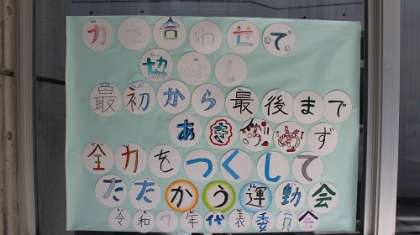 力を合わせて
協力し
最初から最後まで
あきらめず
全力をつくして
たたかう運動会
令和7年代表委員会